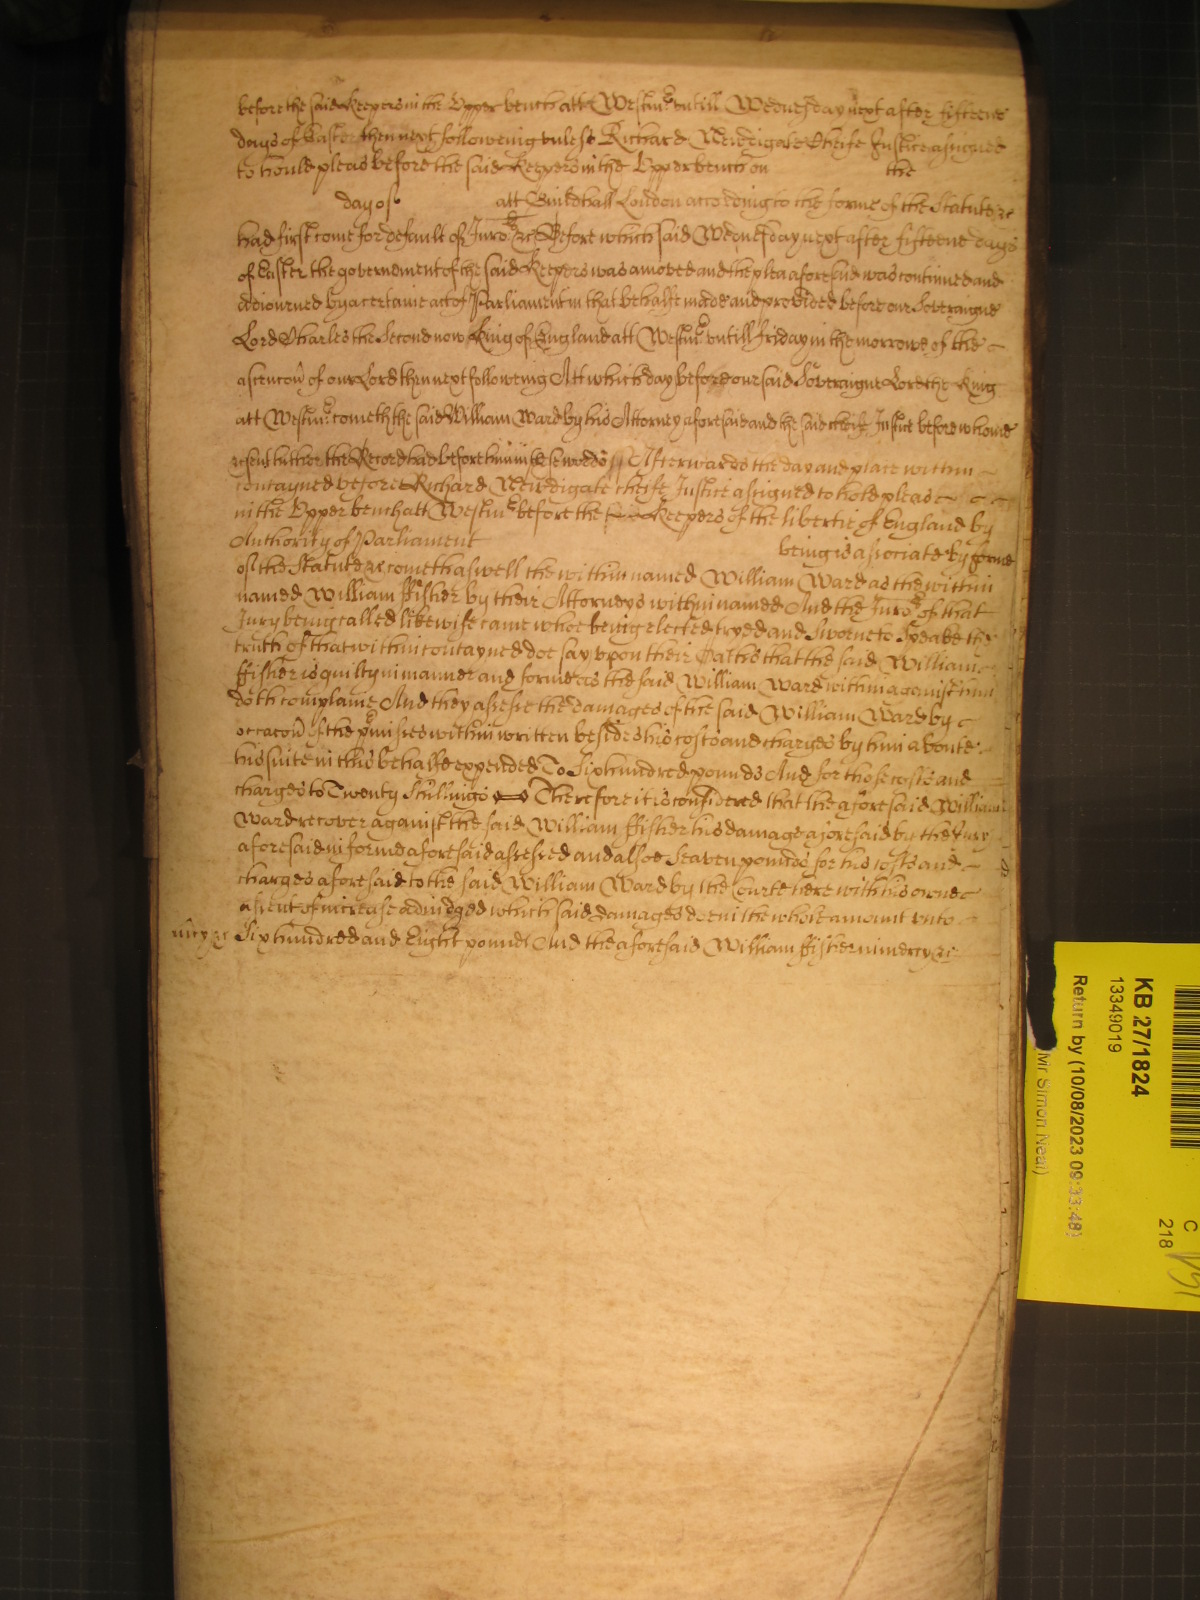 before the said Keepers in the Upper bench att Westmr untill Wednesday next after fifteene
dayes of Easter then next followeing unlesse Richard Newdigate Cheife Justice assigned
to hould pleas before the said Keepers in the Upper bench on the
day of att Guildhall London according to the forme of the Statute &c
had first come for default of Juro:rs &c Before which said Wednesday next after fifteene dayes
of Easter the governement of the said Keepers was amoved and the plea aforesaid was continued and
adiourned by a certaine act of Parliament in that behalfe made and provided before our Soveraigne
Lord Charles the Second now King of England att Westmr untill Friday in the morrowe of the
ascencon of our Lord then next followeing Att which day before our said Soveraigne Lord the King
att Westmr cometh the said William Ward by his Attorney aforesaid and the said cheife Justice before whome
&c sent hither the Record had before him in these words // Afterwards the day and place within
contayned before Richard Newdigate cheife Justice assigned to hold pleas
in the Upper bench att Westmr before the Keepers of the libertie of England by
Authority of Parliament being associate by forme
of the Statute &c cometh aswell the within named William Ward as the within
named William ffisher by their Attorneys within named And the Juro:rs of that
Jury being called likewise came whoe being elected tryed and Sworne to Speake the
truth of that within contayned doe say upon their Oaths that the said William
ffisher is guilty in manner and forme as the said William Ward within against him
doth complaine And they assesse the damages of the said William Ward by
occacon of the pmisses within written besides his costs and charges by him aboute
his suite in this behalfe expended To Six hundred pounds And for those costs and
charges to Twenty Shillings Therefore it is considered that the aforesaid William
Ward recover against the said William ffisher his damage aforesaid by the Jury
aforesaid in forme aforesaid assessed and alsoe Seaven pounds for his costs and
charges aforesaid to the said William Ward by the Courte here with his owne
assent of increase adiudged which said damages doe in the whole amount unto
mcy &c Six hundred and Eight pounds And the aforesaid William ffisher in mercy &c
KB 27/1824
13349019
Return by (10/08/2023 09:33:48)
Mr Simon Neal)
C
218